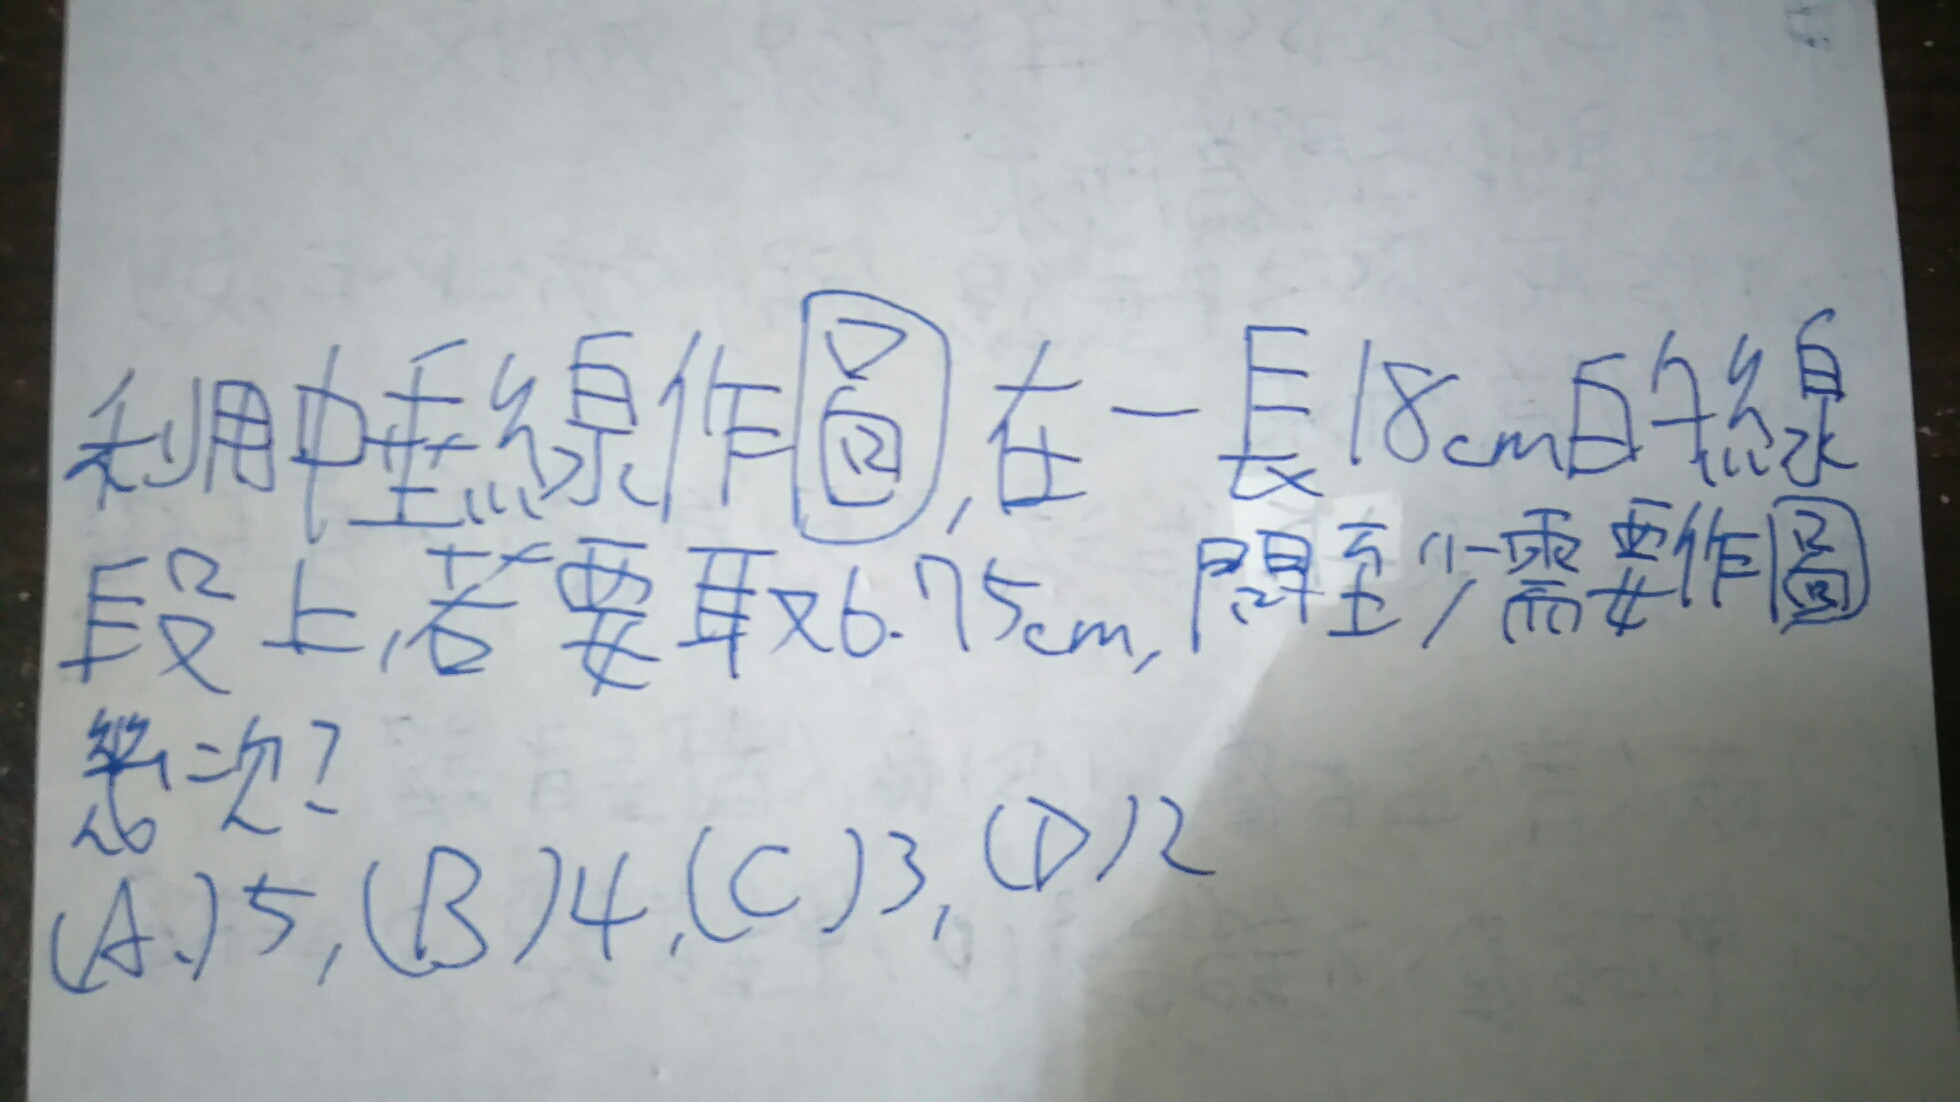 利用中垂線作圖,在一長18cm的線
段上,若要取6.75cm,問至少需要作圖
幾次?
(A.)5,(B)4,(C)3,(D)2